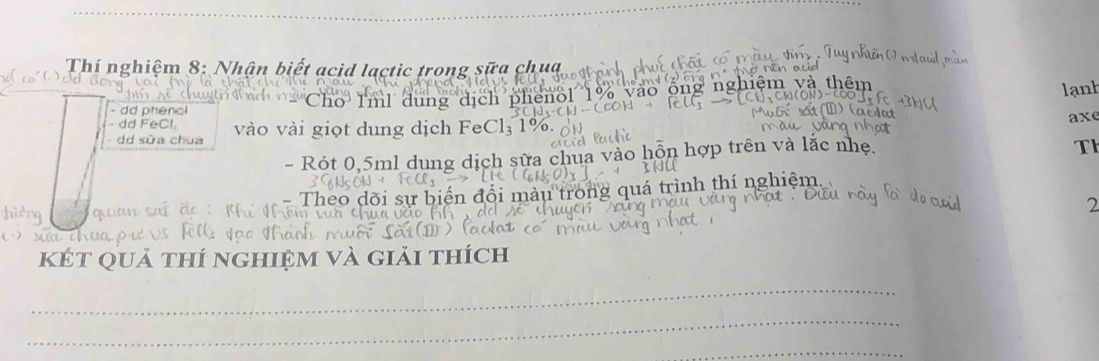 Thí nghiệm 8: Nhận biết acid lactic trong sữa chua
phức chất có màu tím. Tuy nhiên
- dd phenol
- dd FeCl₃
- dd sữa chua
Cho 1ml dung dịch phenol 1% vào ống nghiệm và thêm
lạnh
3CH₃-CH-COOH + FeCl₃ → [CH₃CH(OH)-COO]₃Fe +3HCl
vào vài giọt dung dịch FeCl₃ 1%.
OH
acid lactic
Muối sắt (III) lactat
màu vàng nhạt
axe
- Rót 0,5ml dung dịch sữa chua vào hỗn hợp trên và lắc nhẹ.
3C₆H₅OH + FeCl₃ → [Fe(C₆H₅O)₃] + 3HCl
- Theo dõi sự biến đổi màu trong quá trình thí nghiệm.
quan sát đc: khi thêm sữa chua vào hh, dd sẽ chuyển sang màu vàng nhạt. Điều này là do acid
2
sữa chua pư vs FeCl₃ tạo thành muối sắt (III) lactat có màu vàng nhạt.
KẾT QUẢ THÍ NGHIỆM VÀ GIẢI THÍCH